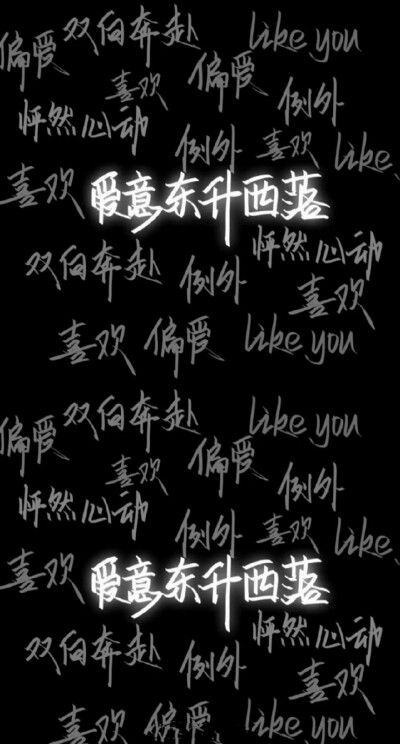 双向奔赴 like you
偏爱 喜欢 偏爱
怦然心动 例外
例外 喜欢 like
喜欢 爱意东升西落
双向奔赴 例外 怦然心动
喜欢
喜欢 偏爱 like you
双向奔赴 like you
偏爱 喜欢 偏爱
怦然心动 例外
例外 喜欢 like
喜欢 爱意东升西落
双向奔赴 例外 怦然心动
喜欢
喜欢 偏爱 like you